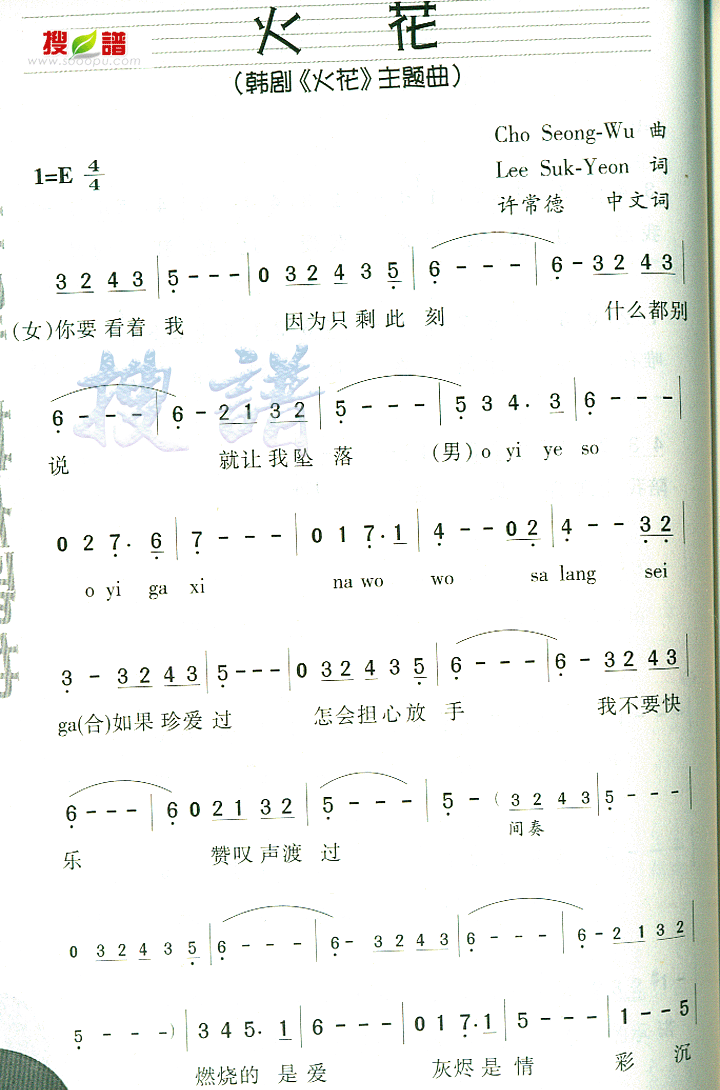 搜譜
www.sooopu.com
火 花
(韩剧《火花》主题曲)
Cho Seong-Wu 曲
1=E 4/4 Lee Suk-Yeon 词
许常德 中文词
3 2 4 3 | 5 - - - | 0 3 2 4 3 5 | 6 - - - | 6 - 3 2 4 3 |
(女)你要看着 我 因为只剩此 刻 什么都别
6 - - - | 6 - 2 1 3 2 | 5 - - - | 5 3 4 . 3 | 6 - - - |
说 就让我坠 落 (男)o yi ye so
0 2 7 . 6 | 7 - - - | 0 1 7 . 1 | 4 - - 0 2 | 4 - - 3 2 |
o yi ga xi na wo wo sa lang sei
3 - 3 2 4 3 | 5 - - - | 0 3 2 4 3 5 | 6 - - - | 6 - 3 2 4 3 |
ga(合)如果珍爱过 怎会担心放 手 我不要快
6 - - - | 6 0 2 1 3 2 | 5 - - - | 5 - ( 3 2 4 3 | 5 - - - |
间奏
乐 赞叹声渡 过
0 3 2 4 3 5 | 6 - - - | 6 - 3 2 4 3 | 6 - - - | 6 - 2 1 3 2 |
5 - - - ) | 3 4 5 . 1 | 6 - - - | 0 1 7 . 1 | 5 - - - | 1 - - 5 |
燃烧的 是 爱 灰烬是 情 彩 沉